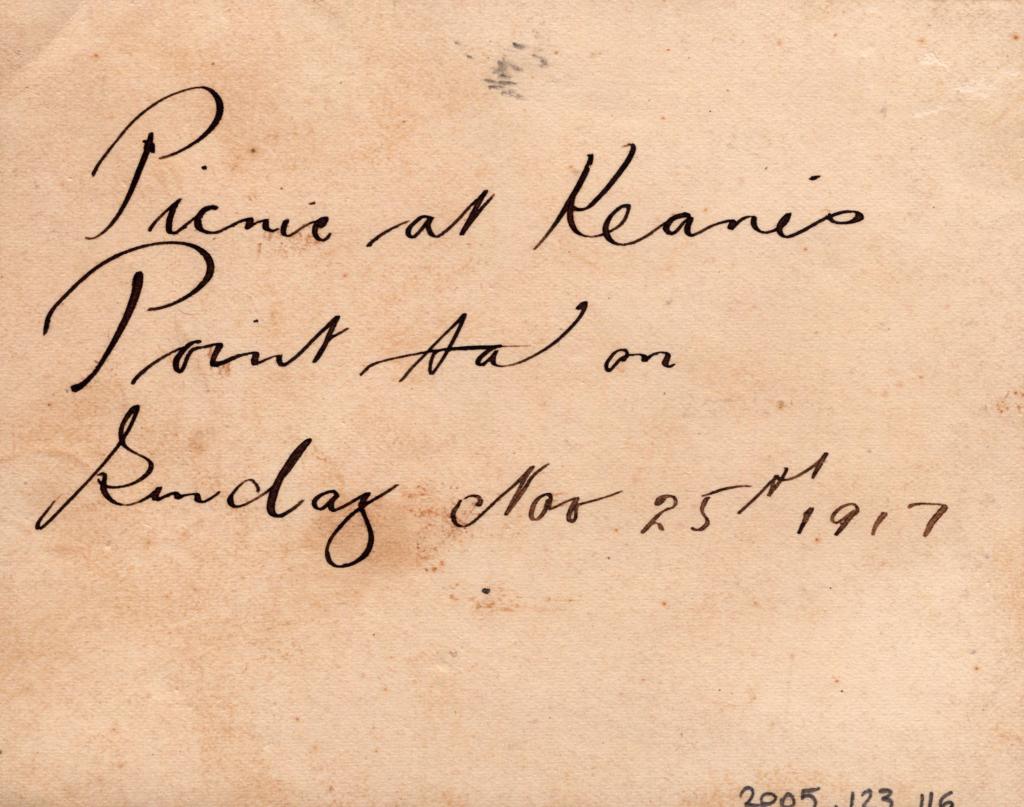 Picnic at Keanes
Point on
Sunday Nov 25th 1917
2005.123.116